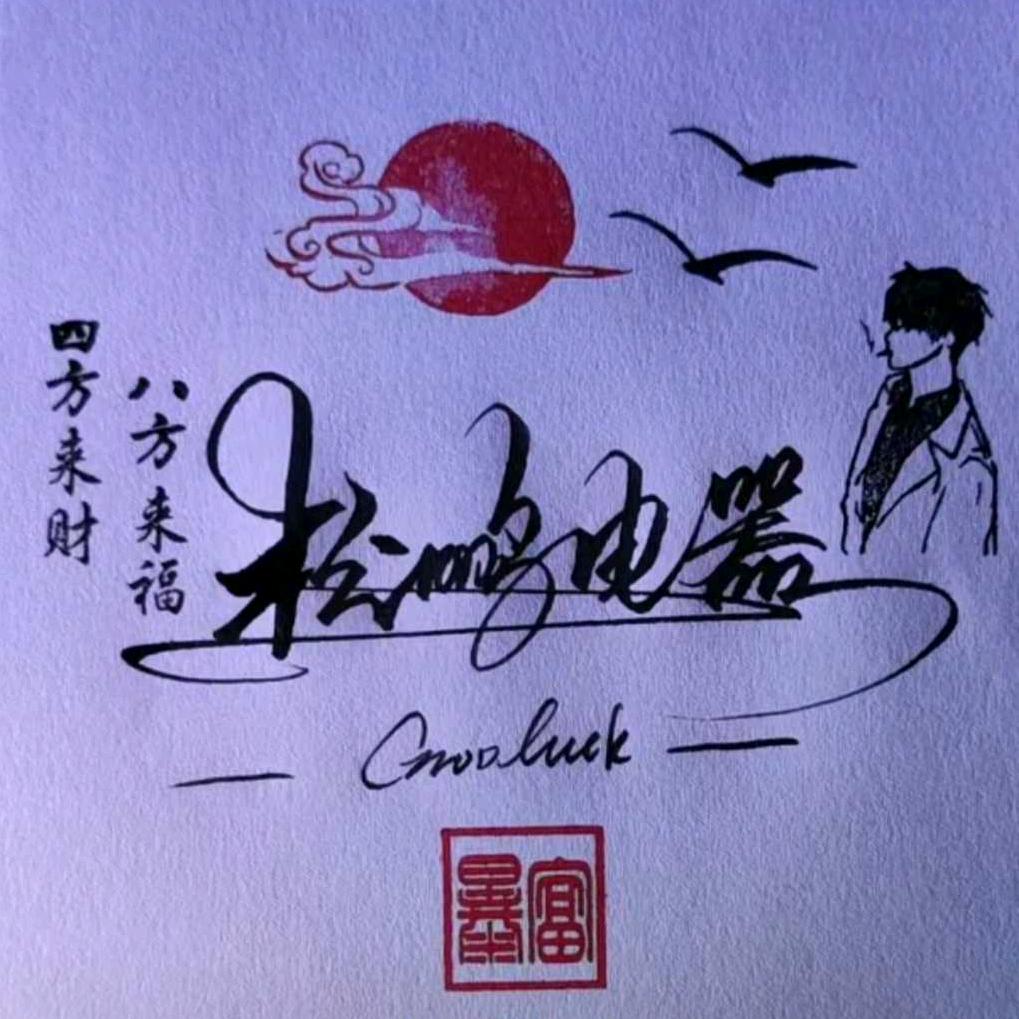 四方来财
八方来福
松鹏电器
Good luck
暴富